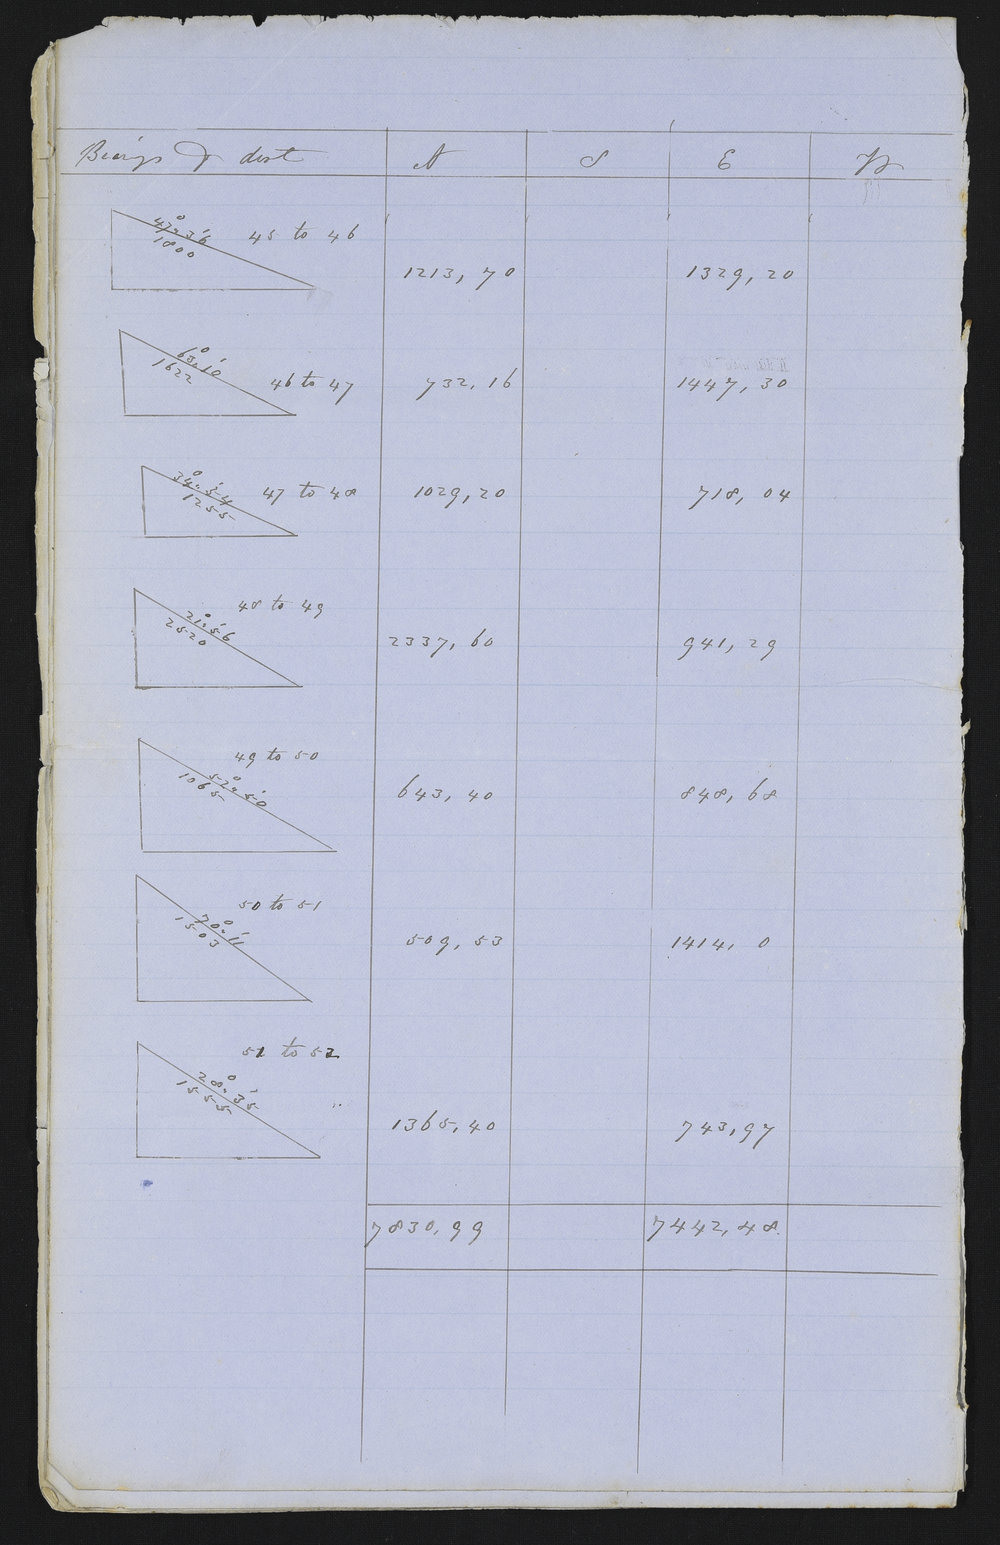 Bearings & dist N S E W
47°.36'
1800
45 to 46
1213,70 1329,20
63°.10'
1622
46 to 47 732,16 1447,30
34°.54'
1255
47 to 48 1029,20 718,04
48 to 49
21°.56'
2520
2337,60 941,29
49 to 50
52°.50'
1065
643,40 848,68
50 to 51
70°.11'
1503
509,53 1414,0
51 to 52
28°.35'
1555
1365,40 743,97
7830,99 7442,48